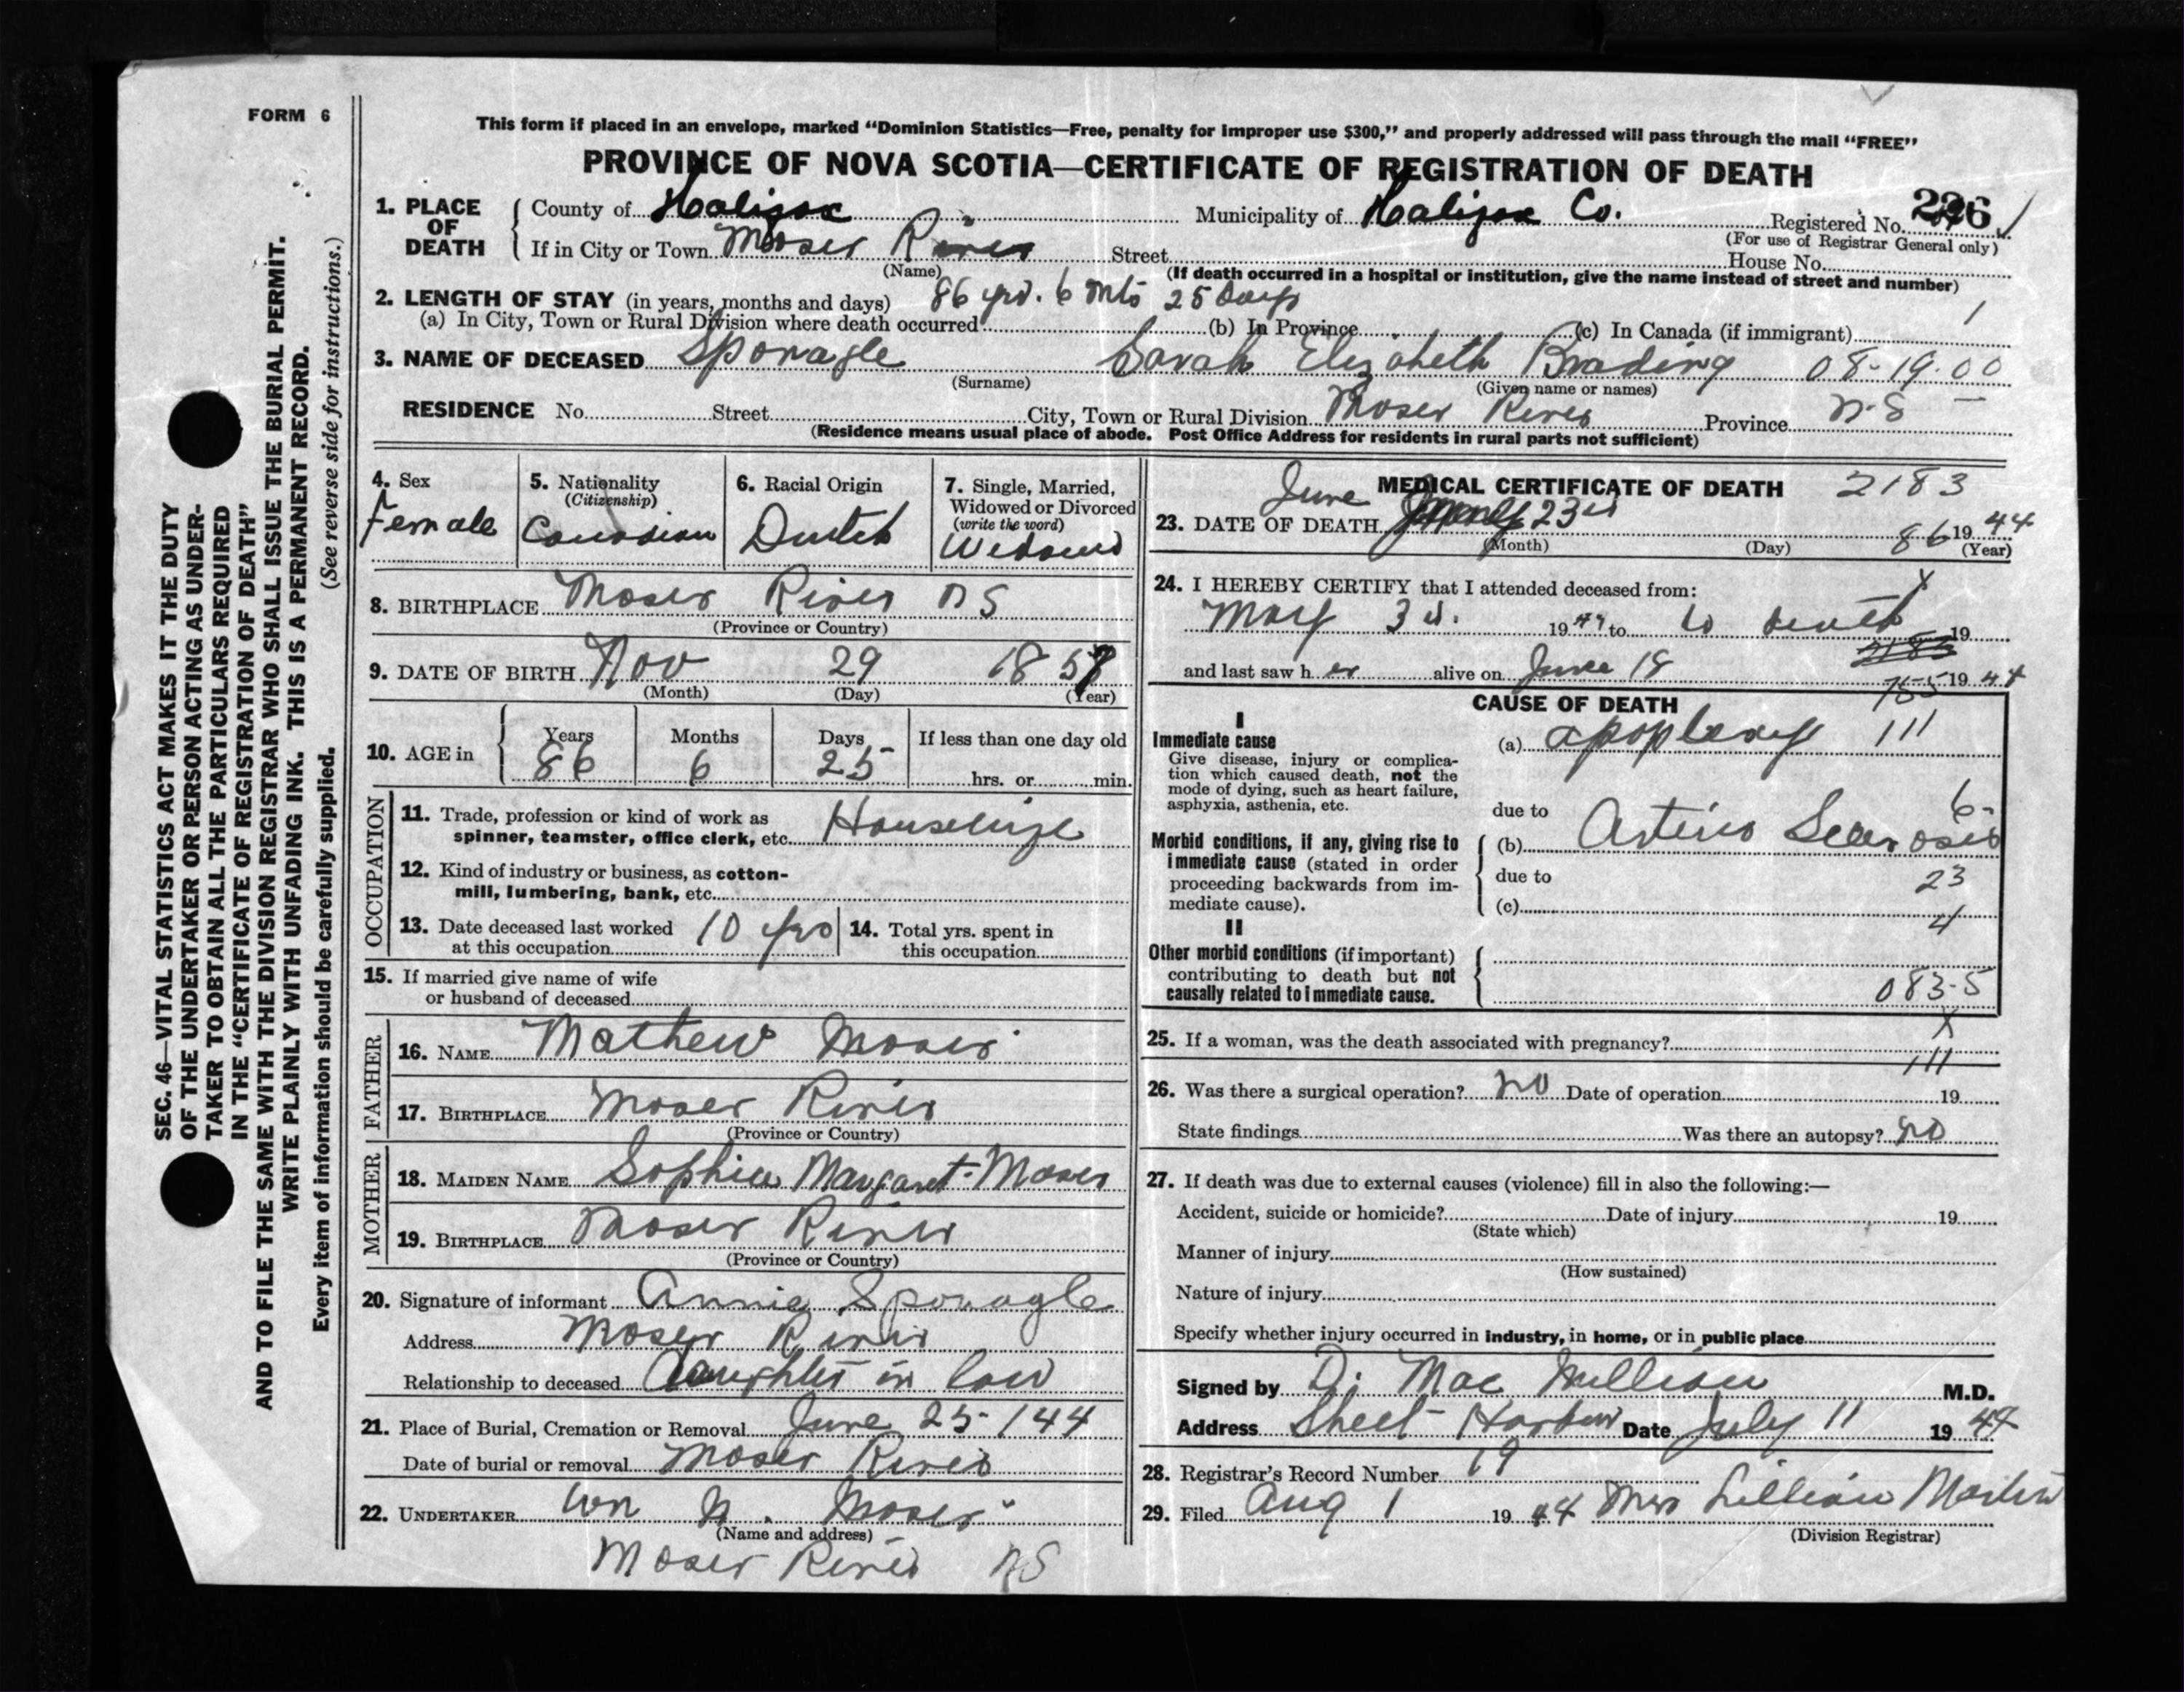 FORM 6
This form if placed in an envelope, marked “Dominion Statistics—Free, penalty for improper use $300,” and properly addressed will pass through the mail “FREE”
PROVINCE OF NOVA SCOTIA—CERTIFICATE OF REGISTRATION OF DEATH
1. PLACE OF DEATH
County of Halifax Municipality of Halifax Co. Registered No.
(For use of Registrar General only)
If in City or Town Moser River Street House No.
(Name) (If death occurred in a hospital or institution, give the name instead of street and number)
2. LENGTH OF STAY (in years, months and days) 86 yrs. 6 Mts 25 Days
(a) In City, Town or Rural Division where death occurred (b) In Province (c) In Canada (if immigrant) 1
3. NAME OF DECEASED Sponagle Sarah Elizabeth 08-19-00
(Surname) (Given name or names)
RESIDENCE No. Street City, Town or Rural Division Moser River Province N.S —
(Residence means usual place of abode. Post Office Address for residents in rural parts not sufficient)
4. Sex
Female
5. Nationality
(Citizenship)
Canadian
6. Racial Origin
Dutch
7. Single, Married,
Widowed or Divorced
(write the word)
8. BIRTHPLACE Moser River NS
(Province or Country)
9. DATE OF BIRTH Nov 29 1857
(Month) (Day) (Year)
10. AGE in
Years Months Days If less than one day old
86 6 25 hrs. or min.
OCCUPATION
11. Trade, profession or kind of work as
spinner, teamster, office clerk, etc. Housewife
12. Kind of industry or business, as cotton-
mill, lumbering, bank, etc.
13. Date deceased last worked
at this occupation 10 yrs
14. Total yrs. spent in
this occupation
15. If married give name of wife
or husband of deceased
FATHER
16. NAME Mathew Moser
17. BIRTHPLACE Moser River
(Province or Country)
MOTHER
18. MAIDEN NAME Sophia Margaret Moser
19. BIRTHPLACE Moser River
(Province or Country)
20. Signature of informant Annie Sponagle
Address Moser River
Relationship to deceased Daughter in law
21. Place of Burial, Cremation or Removal June 25-/44
Date of burial or removal Moser River
22. UNDERTAKER Wm N. Moser
(Name and address)
Moser River NS
MEDICAL CERTIFICATE OF DEATH 2183
23. DATE OF DEATH June 23rd 86 1944
(Month) (Day) (Year)
24. I HEREBY CERTIFY that I attended deceased from: X
May 3rd. 1944 to to death 19
2183
and last saw her alive on June 18 1944
755
CAUSE OF DEATH
I
Immediate cause
Give disease, injury or complica-
tion which caused death, not the
mode of dying, such as heart failure,
asphyxia, asthenia, etc.
(a) apoplexy 111
due to 6-
Morbid conditions, if any, giving rise to
immediate cause (stated in order
proceeding backwards from im-
mediate cause).
(b) Arterio Sclerosis
due to 23
(c) 4
II
Other morbid conditions (if important)
contributing to death but not
causally related to immediate cause.
083-5
25. If a woman, was the death associated with pregnancy? X
111
26. Was there a surgical operation? no Date of operation 19
State findings Was there an autopsy? no
27. If death was due to external causes (violence) fill in also the following:—
Accident, suicide or homicide? Date of injury 19
(State which)
Manner of injury
(How sustained)
Nature of injury
Specify whether injury occurred in industry, in home, or in public place
Signed by D. Mac Millian M.D.
Address Sheet Harbour Date July 11 1944
28. Registrar's Record Number 19
29. Filed Aug 1 1944 Mrs Lillian Martin
(Division Registrar)
SEC. 46—VITAL STATISTICS ACT MAKES IT THE DUTY
OF THE UNDERTAKER OR PERSON ACTING AS UNDER-
TAKER TO OBTAIN ALL THE PARTICULARS REQUIRED
IN THE “CERTIFICATE OF REGISTRATION OF DEATH”
AND TO FILE THE SAME WITH THE DIVISION REGISTRAR WHO SHALL ISSUE THE BURIAL PERMIT.
WRITE PLAINLY WITH UNFADING INK. THIS IS A PERMANENT RECORD.
Every item of information should be carefully supplied. (See reverse side for instructions.)